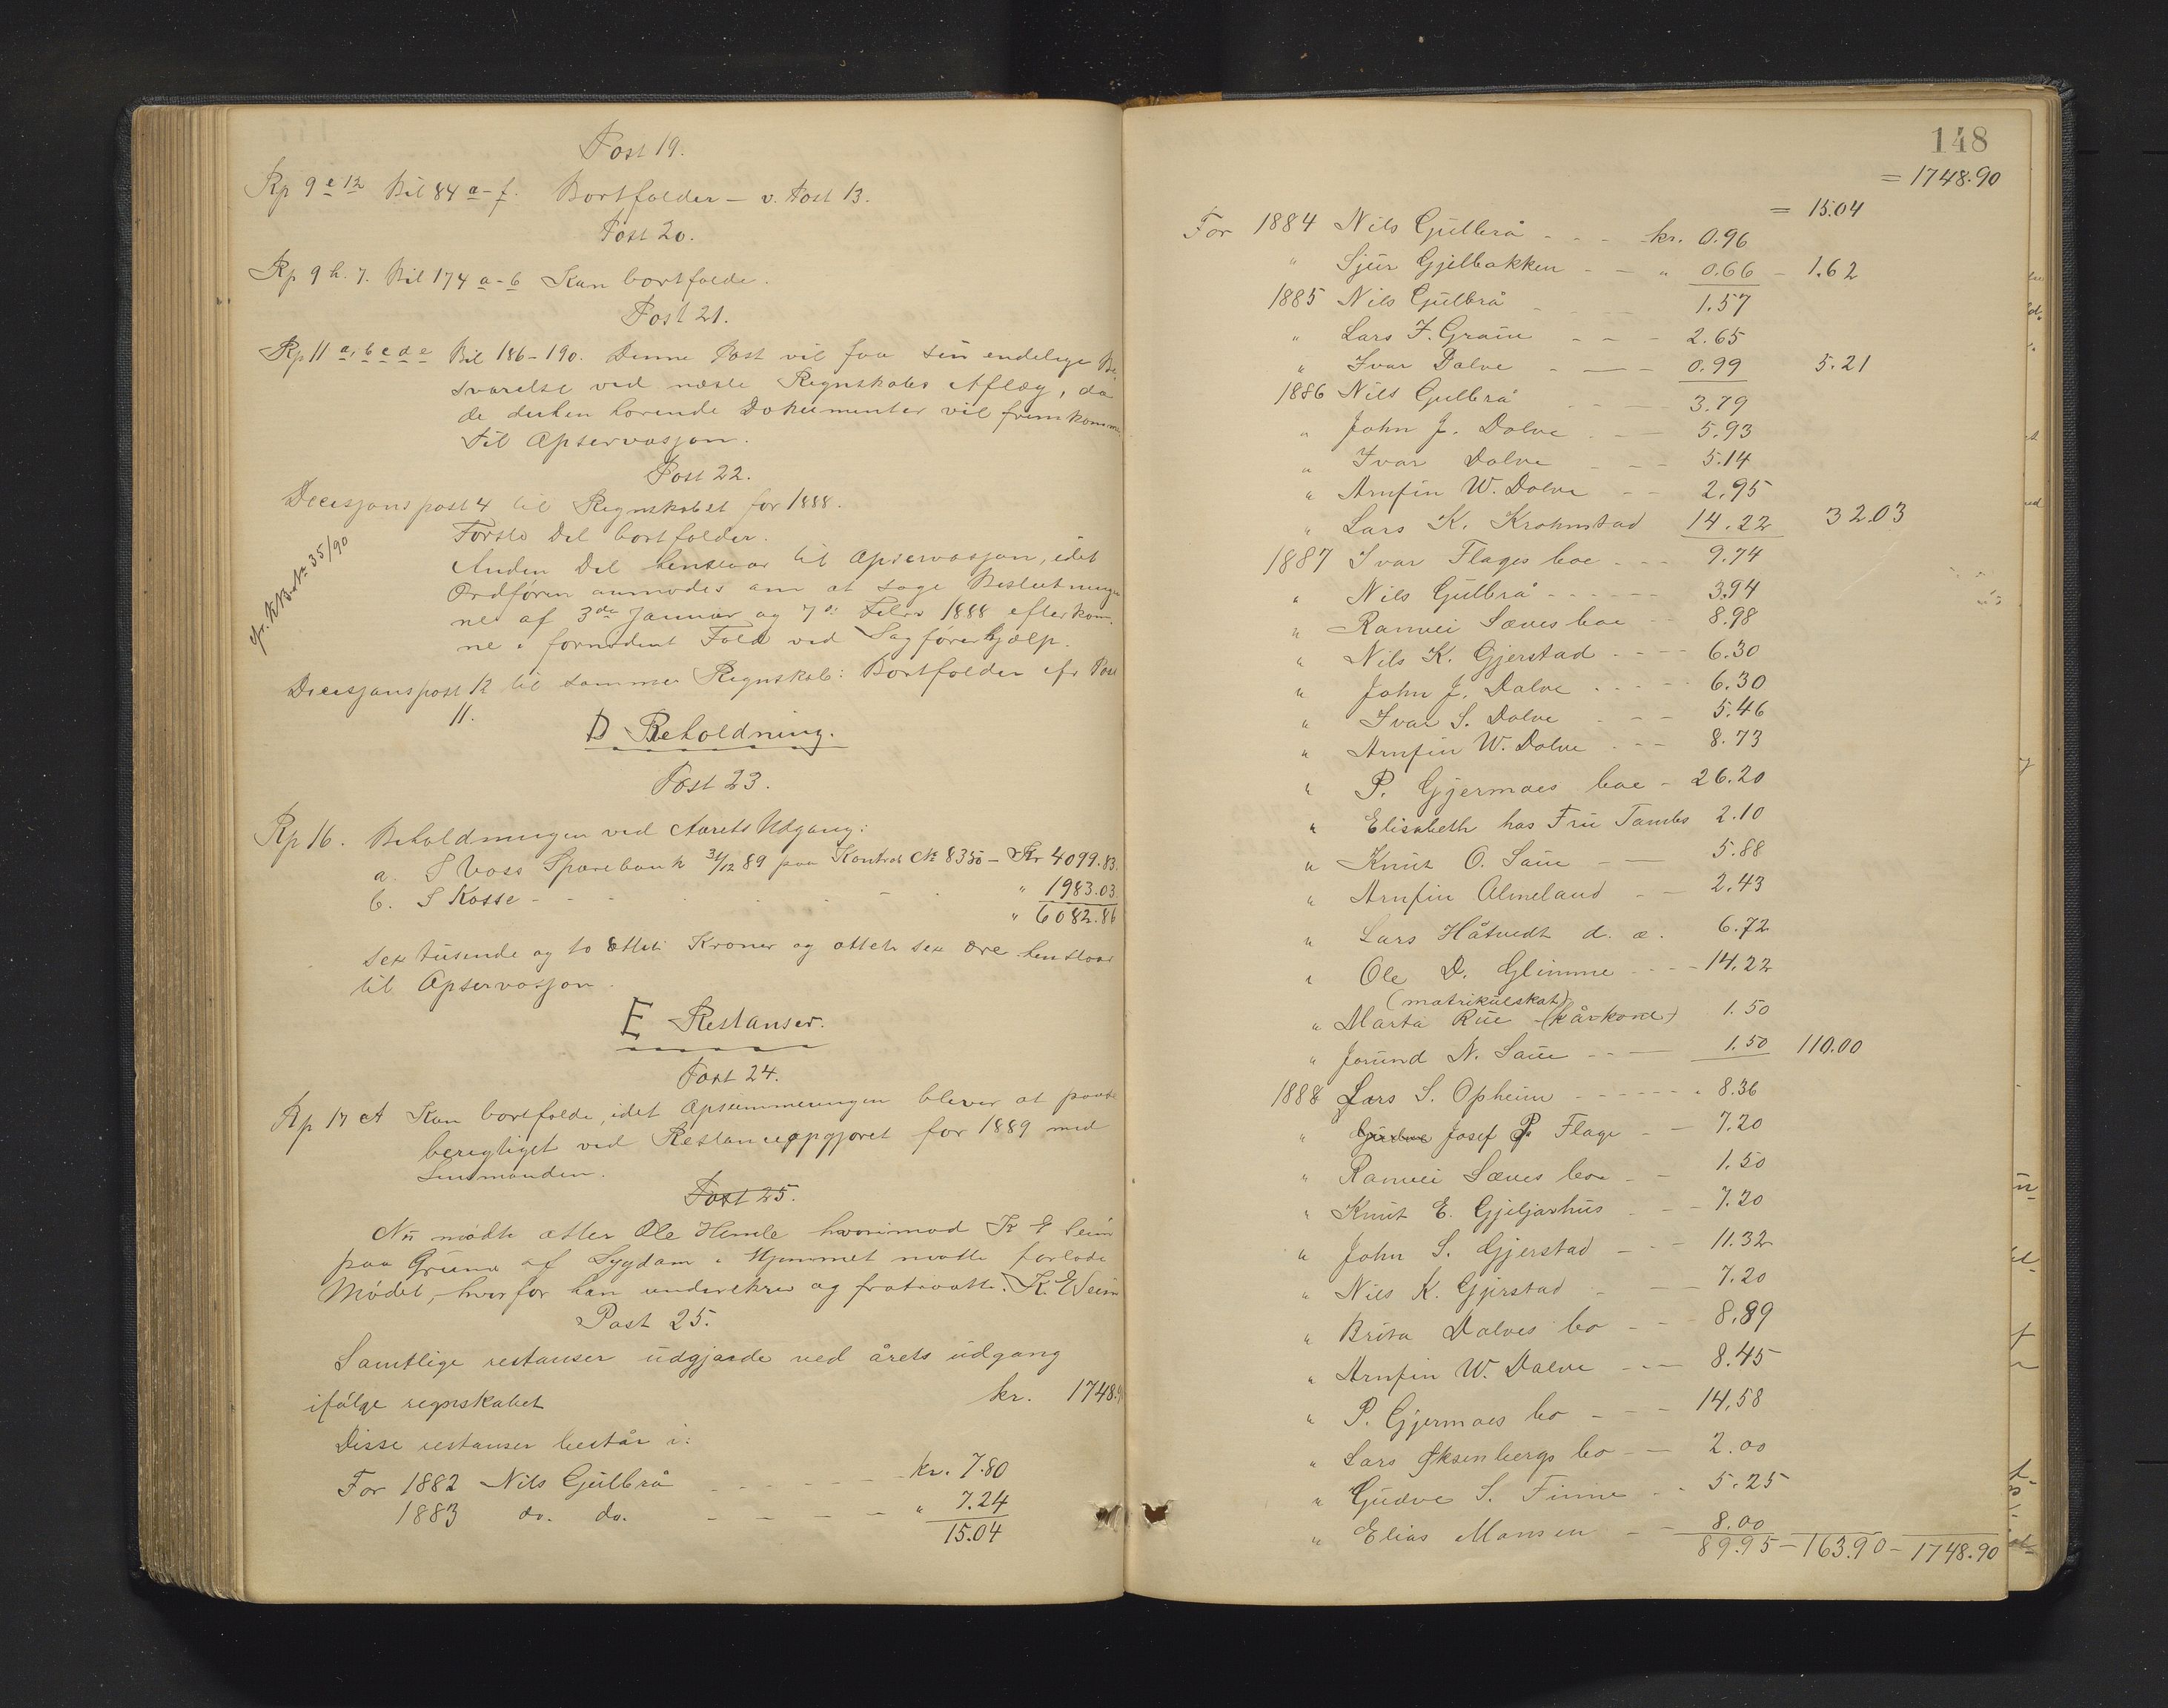 Post 19.
Rp 9 e 12 Bil 84 a-f. Bortfalder — v. Post 13.
Post 20.
Rp 9 h. 7. Bil 174 a-b Kan bortfalde.
Post 21.
Rp 11 a, b c d e Bil 186-190. Denne Post vil faa sin endelige Be-
svarelse ved næste Regnskabs Aflæg, da
de derhen hørende Dokumenter vil fremkomme
til Opservasjon.
Post 22.
Decisjonspost 4 til Regnskabet for 1888.
Første Del bortfalder.
Anden Del henstaar til Opservasjon, idet
Ordføren anmodes om at søge Beslutninge
ne af 3de Januar og 7de Febr 1888 efterkom-
ne i fornødent Fald ved Sagførerhjælp.
cfr. KB. № 35/90
Decisjonspost 12 til samme Regnskab: Bortfalder cfr Post
11.
D Beholdning.
Post 23.
Rp 16. Beholdningen ved Aarets Udgang:
a. I Voss Sparebank 31/12 89 paa Kontrab № 8350 — Kr 4099.83.
b. I Kasse - - - - " 1983.03.
" 6082.86
sex tusende og to otteti Kroner og otteti sex øre henstaar
til Opservasjon.
E Restanser.
Post 24.
Rp 17 A Kan bortfalde, idet Opsummeringen bliver at paase
berigtiget ved Restanceopgjøret for 1889 med
Lensmanden.
Post 25.
Nu mødte atter Ole Hemle hvorimod K E Seim
paa Grund af Sygdom i Hjemmet maatte forlade
Mødet, hvorfor han underskrev og fratraatte. K. E Seim
Post 25.
Samtlige restanser udgjorde ved årets udgang
ifølge regnskabet kr. 1748.9
Disse restanser består i:
For 1882 Nils Gulbrå - - - - kr. 7.80
1883 do. do. - - - - " 7.24
15.04
148
= 1748.90
= 15.04
For 1884 Nils Gulbrå - - - kr. 0.96
" Sjur Gjelbakken - - " 0.66 - 1.62
1885 Nils Gulbrå - - - 1.57
" Lars J. Graue - - - 2.65
" Ivar Dolve - - - 0.99 5.21
1886 Nils Gulbrå - - 3.79
" John J. Dolve - - 5.93
" Ivar Dolve - - - 5.14
" Arnfin W. Dolve - - 2.95
" Lars K. Krohnstad 14.22 32.03
1887 Ivar Flages boe - - - 9.74
" Nils Gulbrå - - - - - 3.94
" Ranvei Sæves boe - - 8.98
" Nils K. Gjerstad - - - - 6.30
" John J. Dolve - - - - 6.30
" Ivar S. Dolve - - - 5.46
" Arnfin W. Dolve - - - 8.73
" P. Gjermoes boe - 26.20
" Elisabeth hos Fru Tambs 2.10
" Knut O. Saue - - 5.88
" Arnfin Almeland - - 2.43
" Lars Håtvedt d. æ. 6.72
" Ole D. Glimme - - - - 14.22
(matrikulskat)
" Marta Rue (kårkone) 1.50
" Jorund N. Saue - - - 1.50 110.00
1888 Lars S. Opheim - - - - - 8.36
" Josef P. Flage - - 7.20
" Ranvei Sæves boe - - 1.50
" Knut E. Gjeljarhus - - - 7.20
" John S. Gjerstad - - - 11.32
" Nils K. Gjerstad - - - 7.20
" Brita Dolves bo - - - 8.89
" Arnfin W. Dolve - - - 8.45
" P. Gjermoes bo - - - 14.58
" Lars Øksenbergs bo - - 2.00
" Gudve S. Finne - - 5.25
" Elias Monsen - - 8.00
89.95 - 163.90 - 1748.90